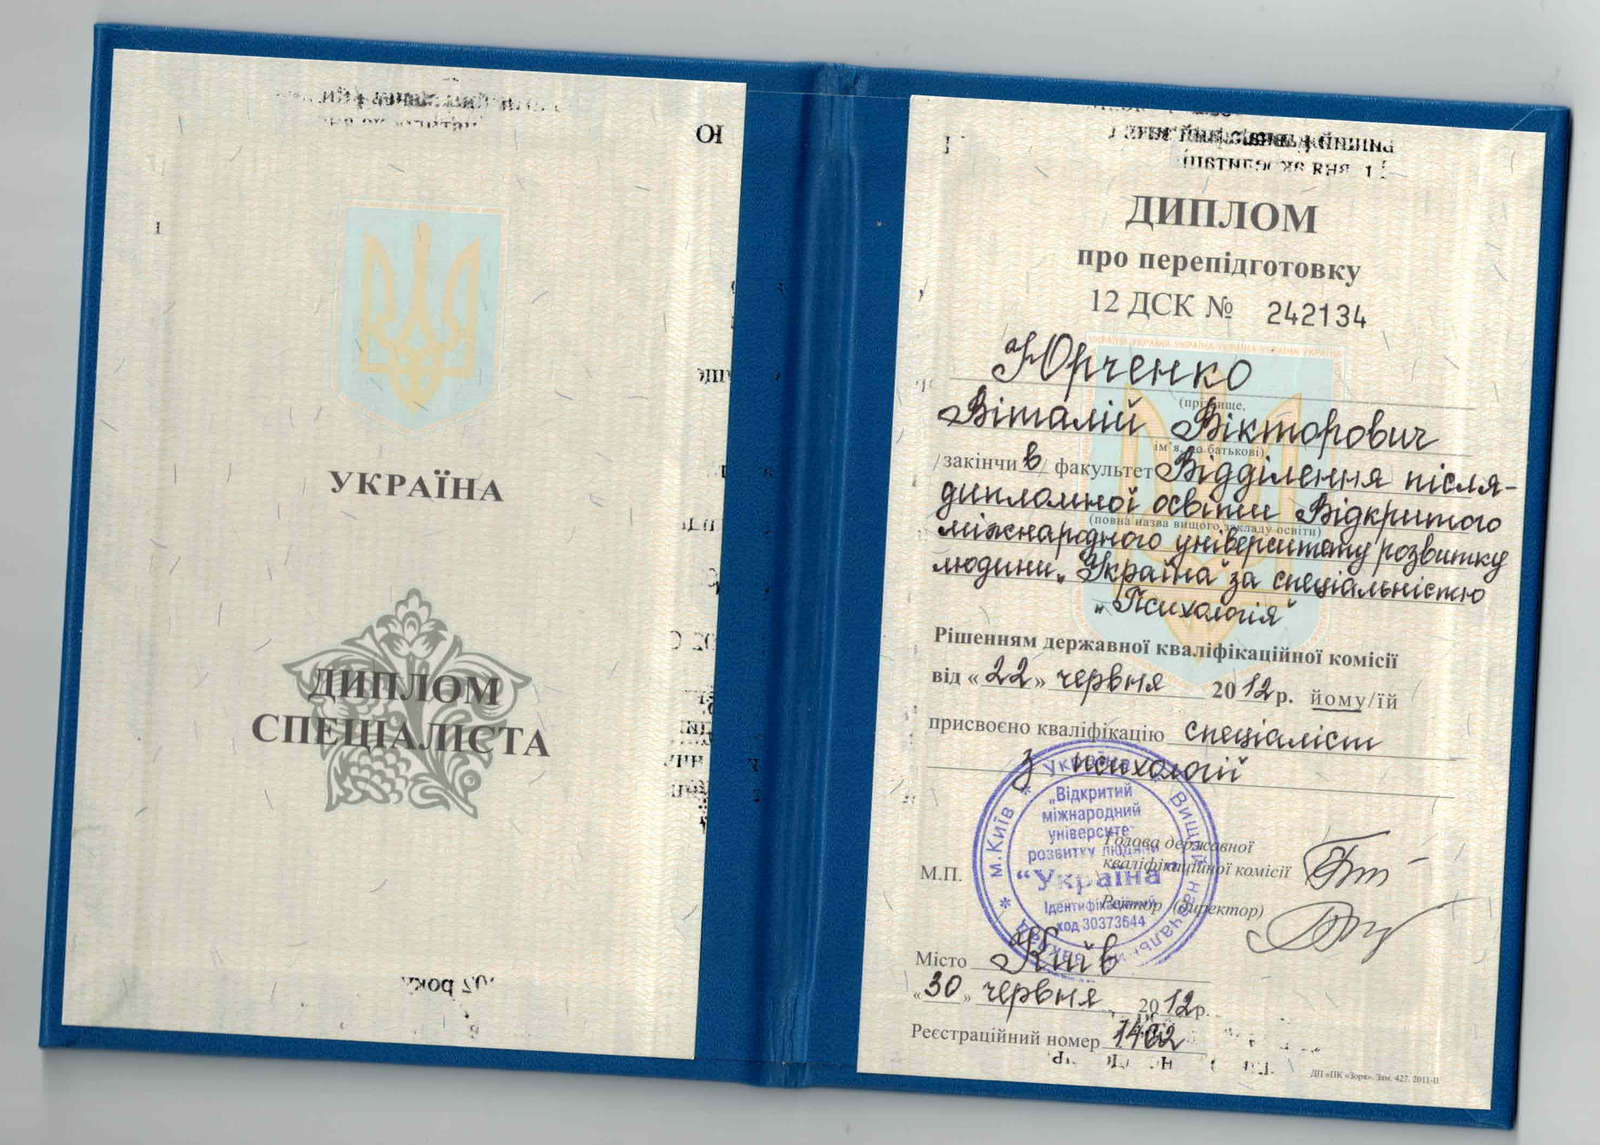 УКРАЇНА
ДИПЛОМ
СПЕЦІАЛІСТА
ДИПЛОМ
про перепідготовку
12 ДСК № 242134
Юрченко
(прізвище,
Віталій Вікторович
ім'я, по батькові)
/закінчив/ факультет Відділення після-
дипломної освіти Відкритого
(повна назва вищого закладу освіти)
міжнародного університету розвитку
людини „Україна" за спеціальністю
„Психологія"
Рішенням державної кваліфікаційної комісії
від «22» червня 2012р. йому/їй
присвоєно кваліфікацію спеціаліст
з психології
Україна * Вищий навчальний заклад * м.Київ *
„Відкритий
міжнародний
університет
розвитку людини
“Україна”
Ідентифікаційний
код 30373644
Голова державної
кваліфікаційної комісії
М.П.
Ректор (директор)
Місто Київ
«30» червня 2012р.
Реєстраційний номер
ДП «ПК «Зоря». Зам. 427. 2011-ІІ